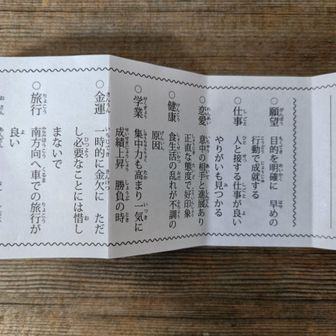 ○願望 目的を明確に 早めの
行動で成就する
○仕事 人と接する仕事が良い
やりがいも見つかる
○恋愛 意中の相手と進展あり
正直な態度で好印象
○健康 食生活の乱れが不調の
原因
○学業 集中力も高まり一気に
成績上昇 勝負の時
○金運 一時的に金欠に ただ
し必要なことには惜し
まないで
○旅行 南方向へ車での旅行が
良い